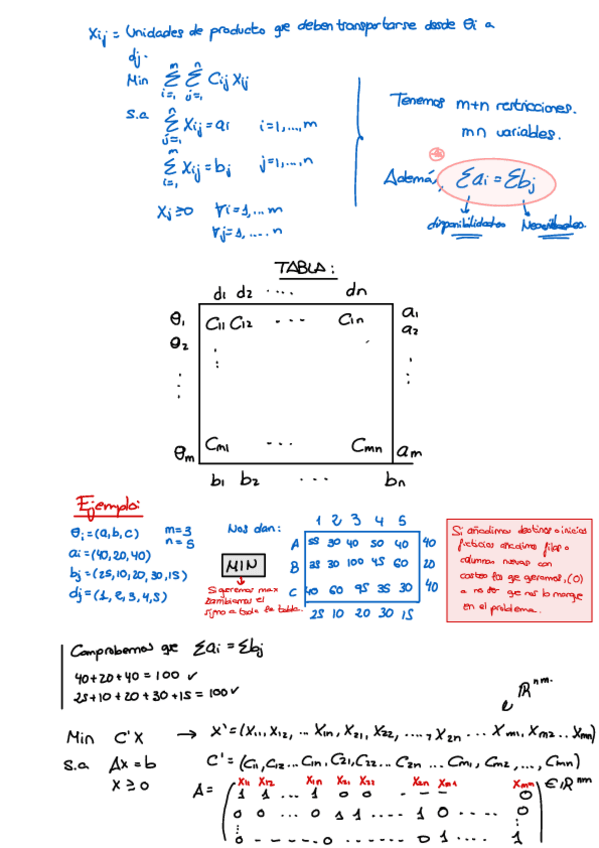 Xij = Unidades de producto que deben transportarse desde θi a
dj.
Min Σ(i=1, m) Σ(j=1, n) Cij Xij
s.a Σ(j=1, n) Xij = ai i=1,...,m
Σ(i=1, m) Xij = bj j=1,...,n
Xj ≥ 0 ∀i=1,...m
∀j=1,....n
Tenemos m+n restricciones.
mn variables.
Además, Σai = Σbj
disponibilidades Necesidades.
TABLA:
d1 d2 .... dn
θ1 C11 C12 --- C1n a1
θ2 a2
θm Cm1 ... Cmn am
b1 b2 ... bn
Ejemplo:
θi = (a,b,c) m=3
n=5
ai = (40,20,40)
bj = (25,10,20,30,15)
dj = (1,2,3,4,5)
Nos dan:
MIN
Si queremos max
cambiamos el
signo a toda la tabla.
1 2 3 4 5
A 55 30 40 50 40 40
B 35 30 100 45 60 20
C 40 60 95 35 30 40
25 10 20 30 15
Si añadimos destinos o inicios
ficticios añadimos filas o
columnas nuevas con
costes (0)
en el problema.
Comprobemos que Σai = Σbj
40+20+40 = 100 ✓
25+10+20+30+15 = 100 ✓
Min C'X → X' = (X11, X12, ... X1n, X21, X22, ...., X2n ... Xm1, Xm2 .. Xmn) ∈ ℝ^nm.
s.a Ax = b C' = (C11, C12 ... C1n, C21, C22 ... C2n ... Cm1, Cm2, ..., Cmn)
X ≥ 0
X11 X12 X1n X21 X22 X2n Xm1 Xmn
A = 1 1 ... 1 0 0 - -- 0 ∈ ℝ^nm
0 0 ... 0 1 1 .... 1 0 .... 0
0 - ---- 0 ----- 0 1 .... 1